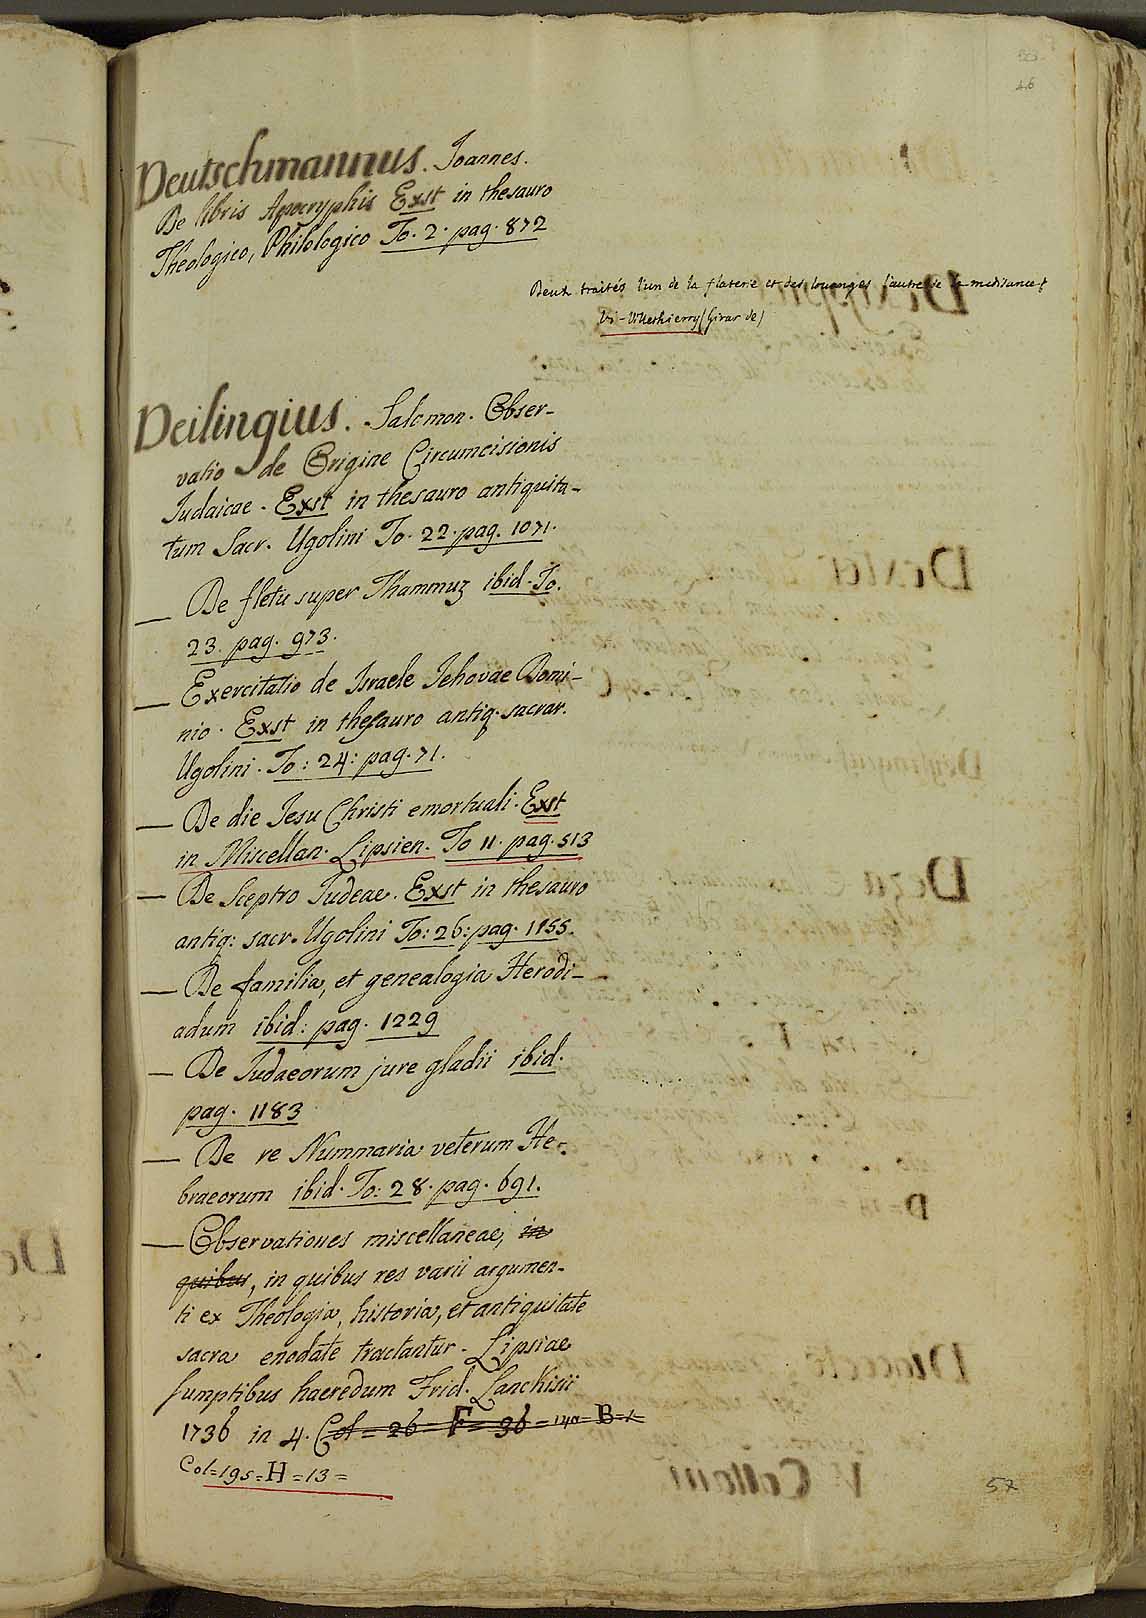 46
Deutschmannus. Joannes.
De libris Apocryphis Exst in thesauro
Theologico, Philologico To. 2. pag. 872
Deux traités l'un de la flaterie et des louanges l'autre de la medisance
Vi - Villethierry (Girar de)
Deilingius. Salomon. Obser-
vatio de Origine Circumcisionis
Judaicae. Exst in thesauro antiquita-
tum Sacr. Ugolini To. 22. pag. 1071.
— De fletu super Thammuz ibid. To.
23. pag. 973.
— Exercitatio de Israele Jehovae Domi-
nio. Exst in thesauro antiq. sacrar.
Ugolini. To: 24: pag. 71.
— De die Jesu Christi emortuali. Exst
in Miscellan. Lipsien. To 11. pag. 513
— De Sceptro Judeae. Exst in thesauro
antiq: sacr. Ugolini To: 26: pag. 1155.
— De familia, et genealogia Herodi-
adum ibid: pag. 1229
— De Judaeorum jure gladii ibid.
pag. 1183
— De re Nummaria veterum He-
braeorum ibid. To: 28. pag. 691.
— Observationes miscellaneae, in
quibus, in quibus res varii argumen-
ti ex Theologia, historia, et antiquitate
sacra enodate tractantur. Lipsiae
sumptibus haeredum Frid. Lanckisii
1736 in 4. Col = 26 = F = 36 = 140 = B = 1
Col = 195 = H = 13 =
57